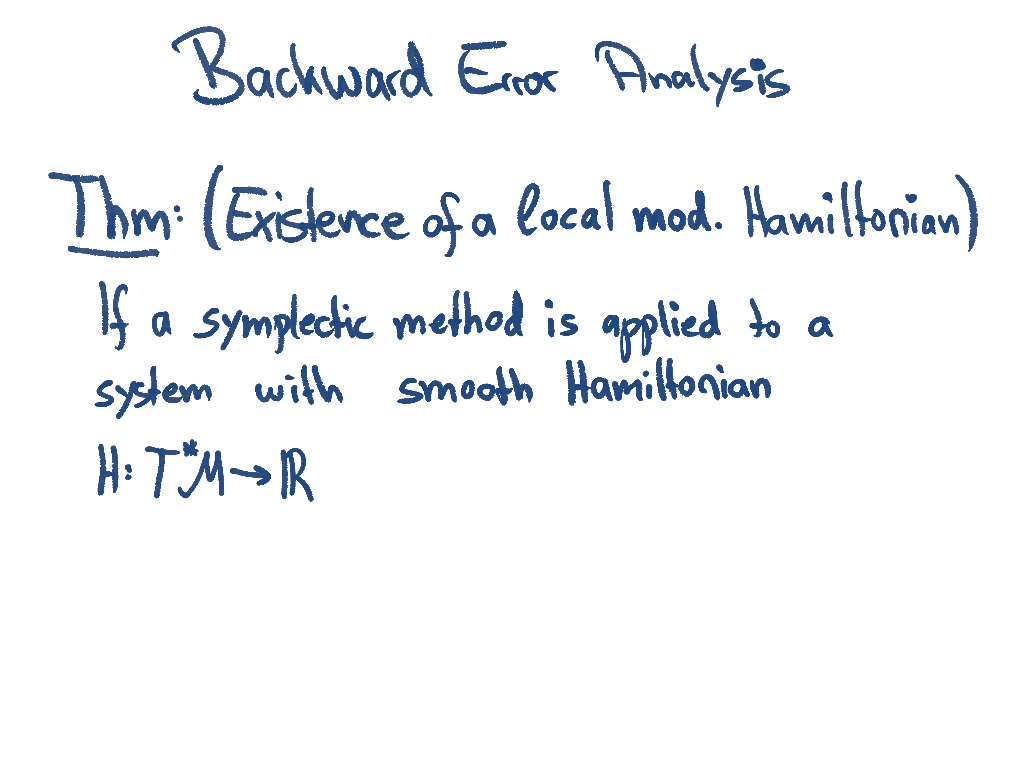 Backward Error Analysis
Thm: (Existence of a local mod. Hamiltonian)
If a symplectic method is applied to a
system with smooth Hamiltonian
H: T*M → ℝ